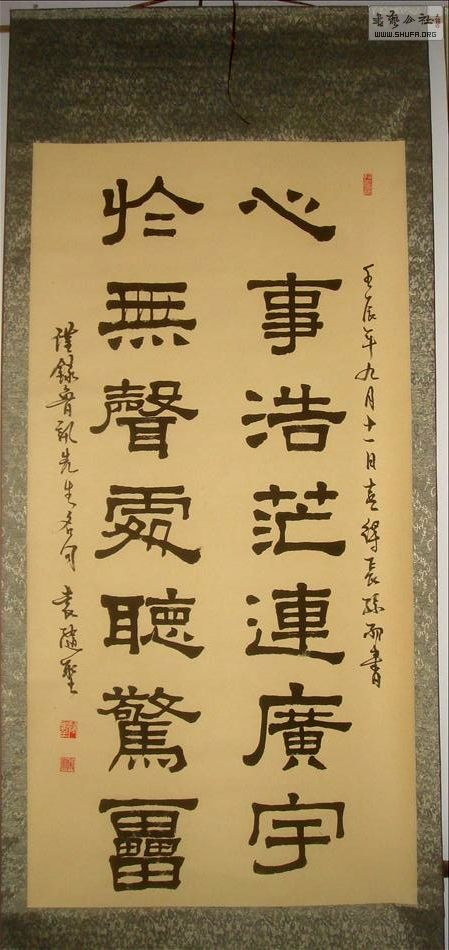 書藝公社
WWW.SHUFA.ORG
壬辰年九月十一日喜得長孫而書
心事浩茫連廣宇
於無聲處聽驚靁
謹錄魯訊先生名句 袁